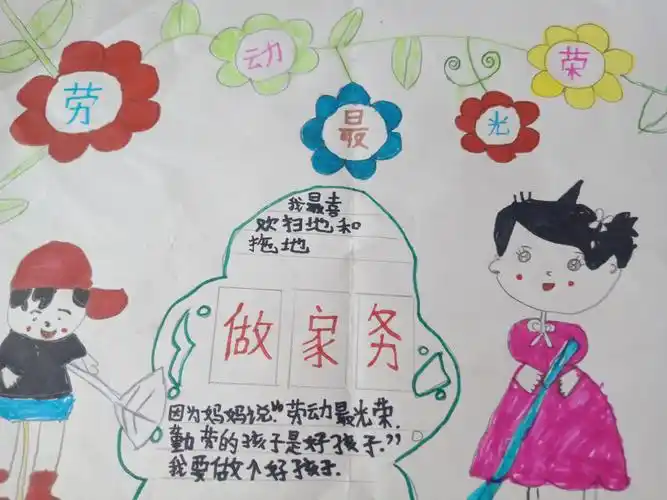 劳动最光荣
我最喜
欢扫地和
拖地
做家务
因为妈妈说"劳动最光荣,
勤劳的孩子是好孩子."
我要做个好孩子.